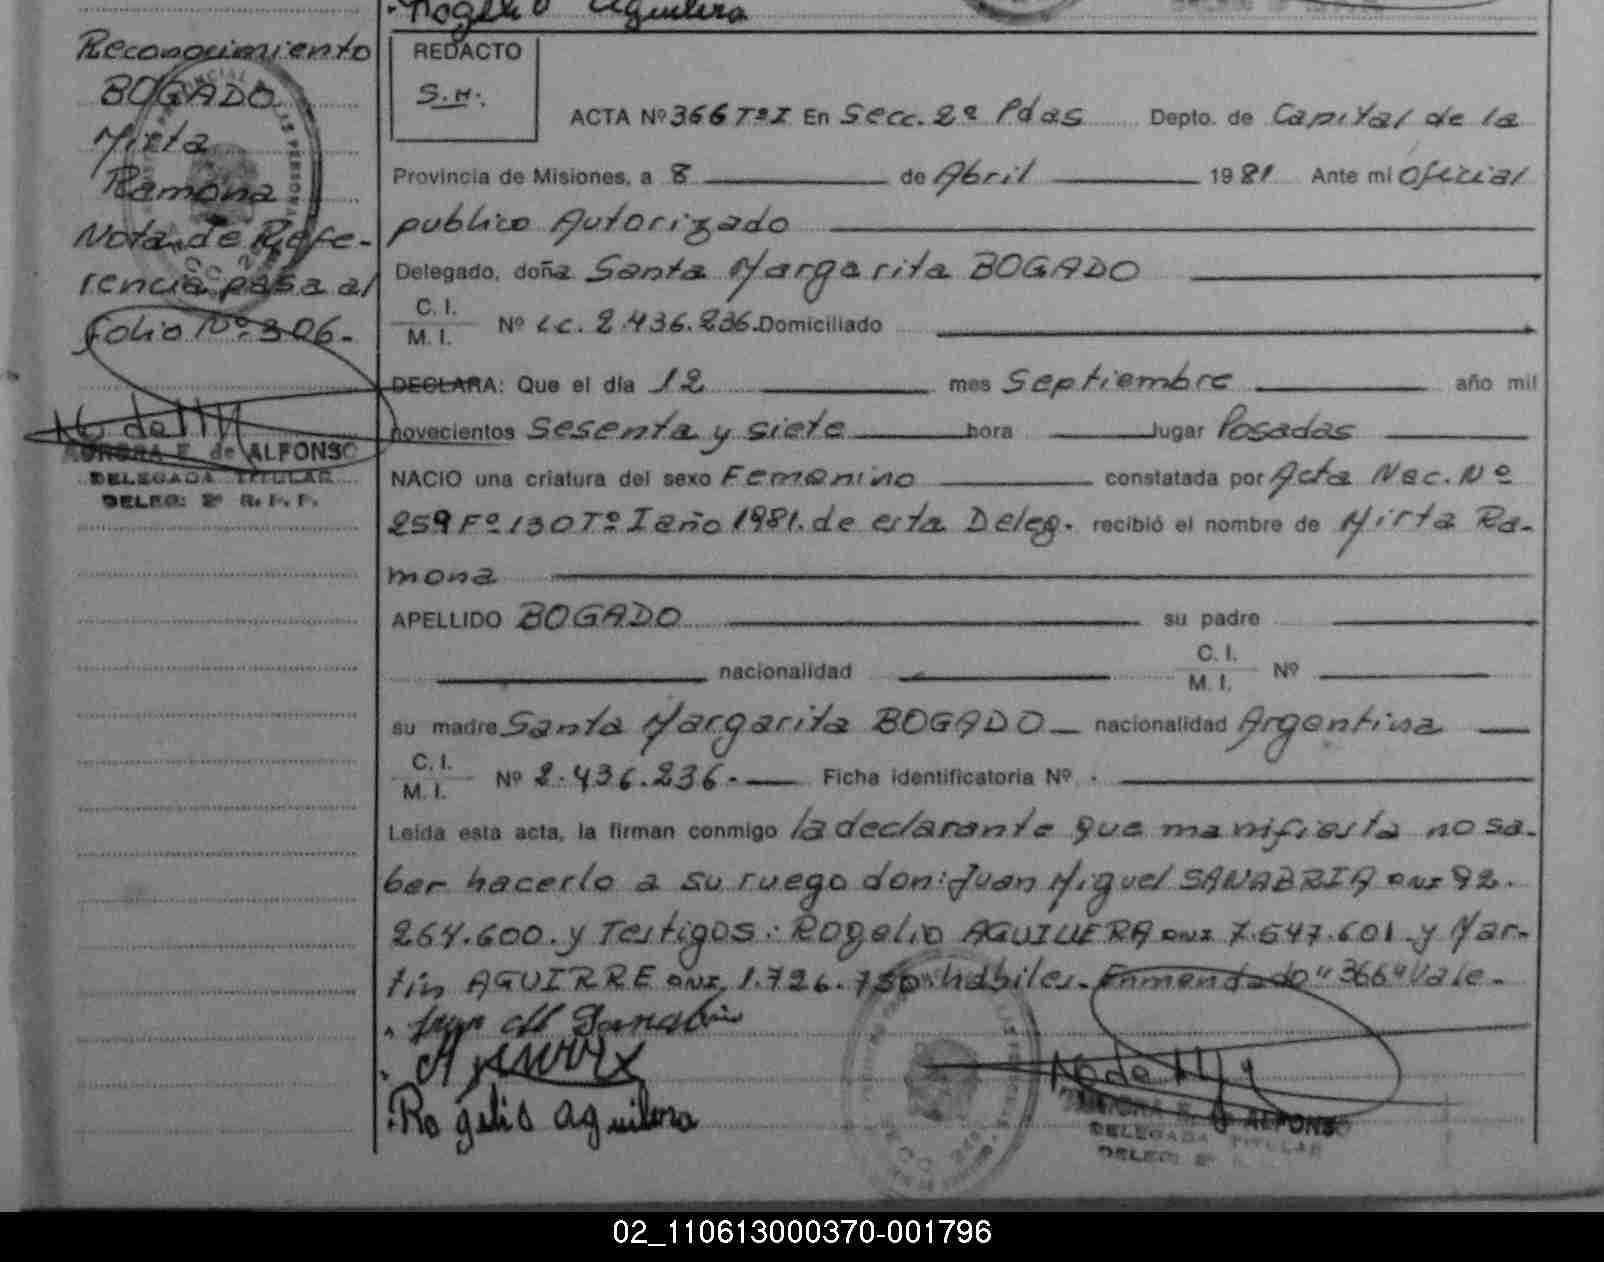 Rogelio Aguilera
Reconocimiento
BOGADO
Mirta
Ramona
Nota de Refe-
rencia pasa al
folio Nº 306.-
AURORA E. de ALFONSO
DELEGADA TITULAR
DELEG: 2ª R. P. P.
REDACTO
S.H.
ACTA Nº 366 TºI En Secc. 2ª Pdas Depto. de Capital de la
Provincia de Misiones, a 8 de Abril 1981 Ante mi Oficial
publico Autorizado
Delegado, doña Santa Margarita BOGADO
C. I.
M. I. Nº L.C. 2.436.236. Domiciliado
DECLARA: Que el día 12 mes Septiembre año mil
novecientos Sesenta y siete hora lugar Posadas
NACIO una criatura del sexo Femenino constatada por Acta Nac. Nº
259 Fº 130 Tº I año 1981. de esta Deleg. recibió el nombre de Mirta Ra-
mona
APELLIDO BOGADO su padre
nacionalidad C. I.
M. I. Nº
su madre Santa Margarita BOGADO nacionalidad Argentina
C. I.
M. I. Nº 2.436.236.- Ficha identificatoria Nº
Leída esta acta, la firman conmigo la declarante que manifiesta no sa-
ber hacerlo a su ruego don: Juan Miguel SANABRIA DNI 92.
264.600. y Testigos: Rogelio AGUILERA DNI 7.547.601 y Mar-
tin AGUIRRE DNI. 1.726.750 hábiles. Enmendado "366" Vale.-
Juan M Sanabria
Rogelio Aguilera
AURORA E. de ALFONSO
DELEGADA TITULAR
DELEG: 2ª
02_110613000370-001796